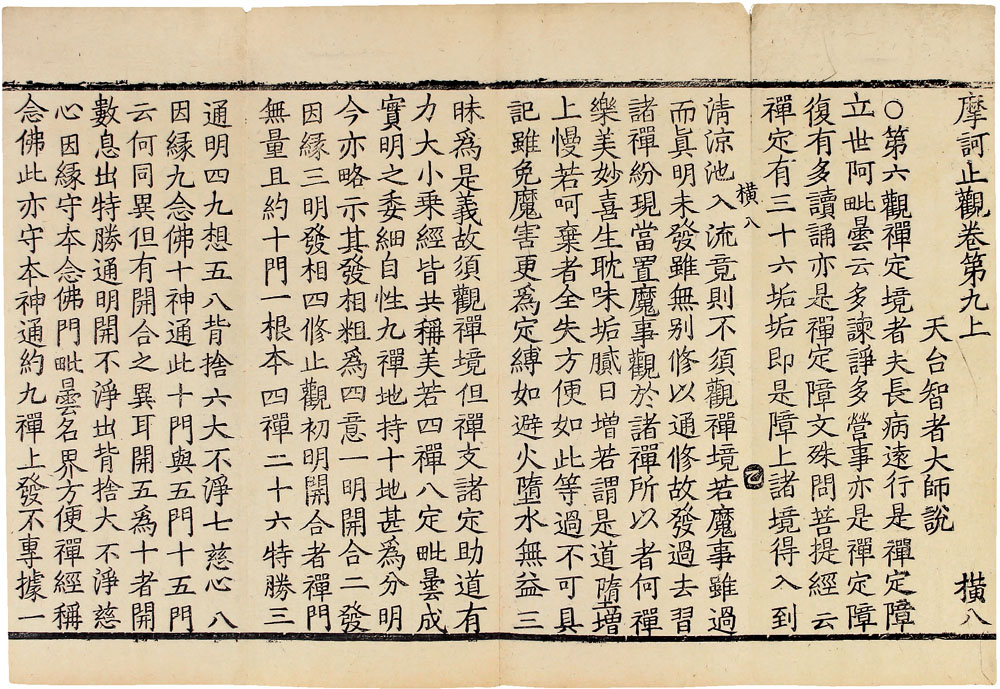 摩訶止觀卷第九上
天台智者大師說 橫八
○第六觀禪定境者夫長病遠行是禪定障
立世阿毗曇云多諫諍多營事亦是禪定障
復有多讀誦亦是禪定障文殊問菩提經云
禪定有三十六垢垢即是障上諸境得入到
橫八
清涼池入流竟則不須觀禪境若魔事雖過
而眞明未發雖無別修以通修故發過去習
諸禪紛現當置魔事觀於諸禪所以者何禪
樂美妙喜生耽味垢膩日增若謂是道墮增
上慢若呵棄者全失方便如此等過不可具
記雖免魔害更爲定縛如避火墮水無益三
昧爲是義故須觀禪境但禪支諸定助道有
力大小乘經皆共稱美若四禪八定毗曇成
實明之委細自性九禪地持十地甚爲分明
今亦略示其發相粗爲四意一明開合二發
因緣三明發相四修止觀初明開合者禪門
無量且約十門一根本四禪二十六特勝三
通明四九想五八背捨六大不淨七慈心八
因緣九念佛十神通此十門與五門十五門
云何同異但有開合之異耳開五爲十者開
數息出特勝通明開不淨出背捨大不淨慈
心因緣守本念佛門毗曇名界方便禪經稱
念佛此亦守本神通約九禪上發不專據一